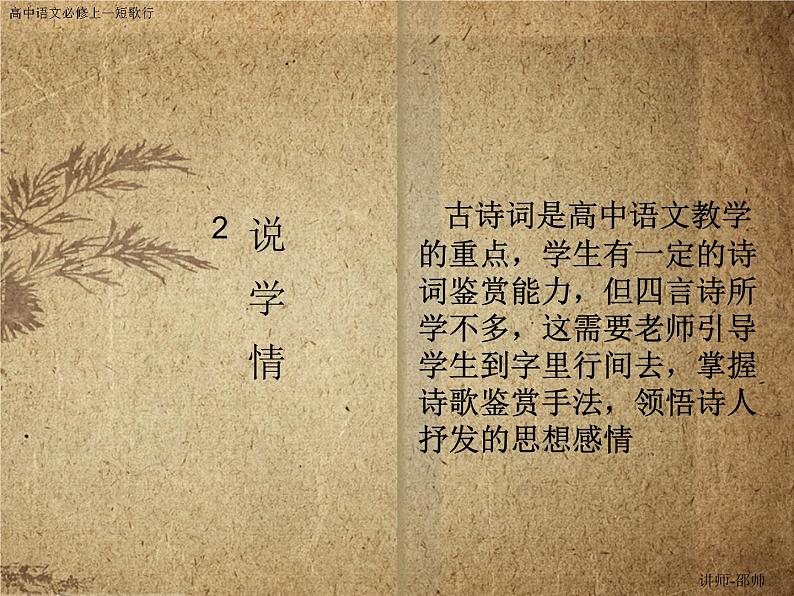 高中语文必修上—短歌行
2
说学情
古诗词是高中语文教学
的重点，学生有一定的诗
词鉴赏能力，但四言诗所
学不多，这需要老师引导
学生到字里行间去，掌握
诗歌鉴赏手法，领悟诗人
抒发的思想感情
讲师-邵帅